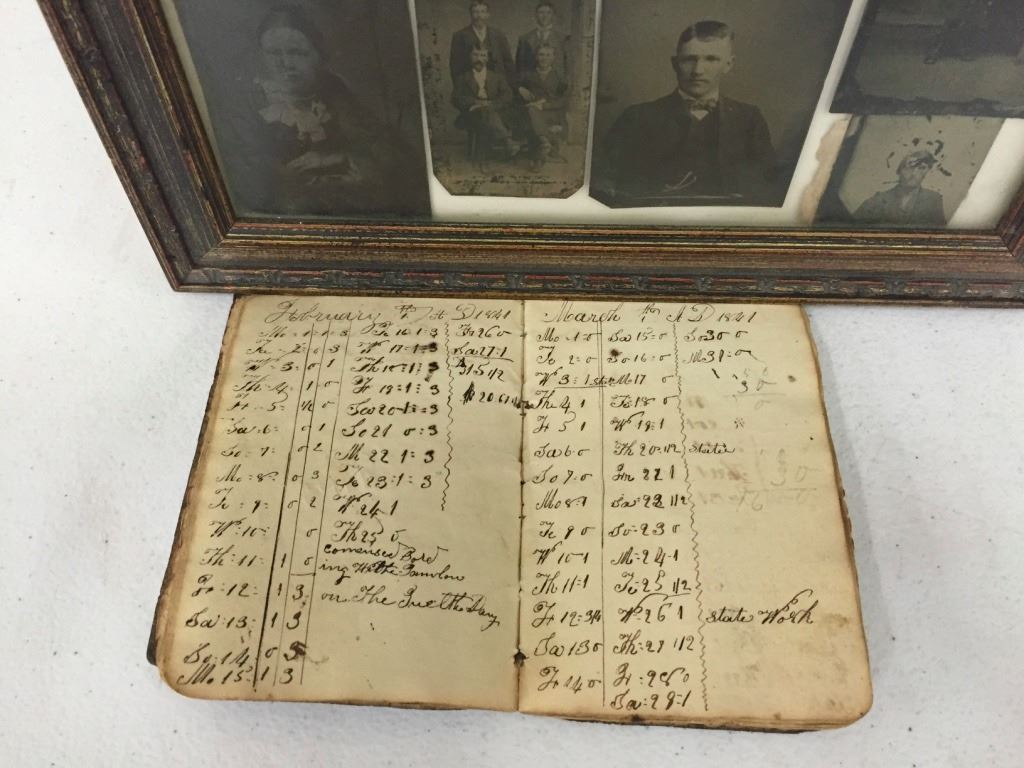 February AD 1841
Mo = 1 = 1 3
Tu = 2 = 0 3
W = 3 = 0 1
Th = 4 1 0
Fr = 5 = ½ 0
Sa = 6 = 0 1
So = 7 = 0 2
Mo = 8 = 0 3
Tu = 9 = 0 2
W = 10 = 0
Th = 11 = 1 0
Fr = 12 = 1 3
Sa = 13 = 1 3
So = 14 0 3
Mo 15 = 1 3
Tu 16 1 = 3
W 17 = 1 = 3
Th 18 = 1 = 3
Fr 19 = 1 = 3
Sa 20 = 1 = 3
So 21 0 = 3
M 22 1 = 3
Tu 23 = 1 = 3
W = 24 1
Th 25 0
comensed Bord
ing
on The Day
Fr 26 0
Sa 27 = 1
15 1/2
20 6
March AD 1841
Mo = 1 = 0
Tu = 2 = 0
W 3 = 1 state
Th 4 1
Fr 5 1
Sa 6 0
So 7 0
Mo 8 = 1
Tu 9 0
W 10 = 1
Th 11 = 1
Fr 12 = 3/4
Sa 13 0
14 0
Sa 15 = 0
So 16 = 0
M 17 0
Tu 18 0
W 19 = 1
Th 20 = 1/2 state
Fr 22 1
Sa = 22 1/2
So = 23 0
M = 24 = 1
Tu = 25 1/2
W = 26 1 state Work
Th = 27 1/2
Fr = 28 0
Sa = 29 = 1
So 30 0
M 31 = 0
30
0
30